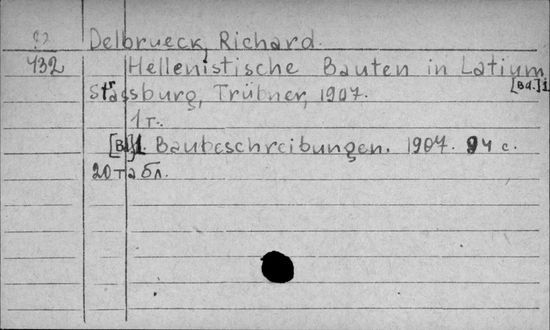 82 Delbrueck, Richard.
432 Hellenistische Bauten in Latium,
[Bd.] 1
Strassburg, Trübner, 1907.
1 т.
[Bd] 1. Baubeschreibungen. 1907. 94 с.
20 табл.